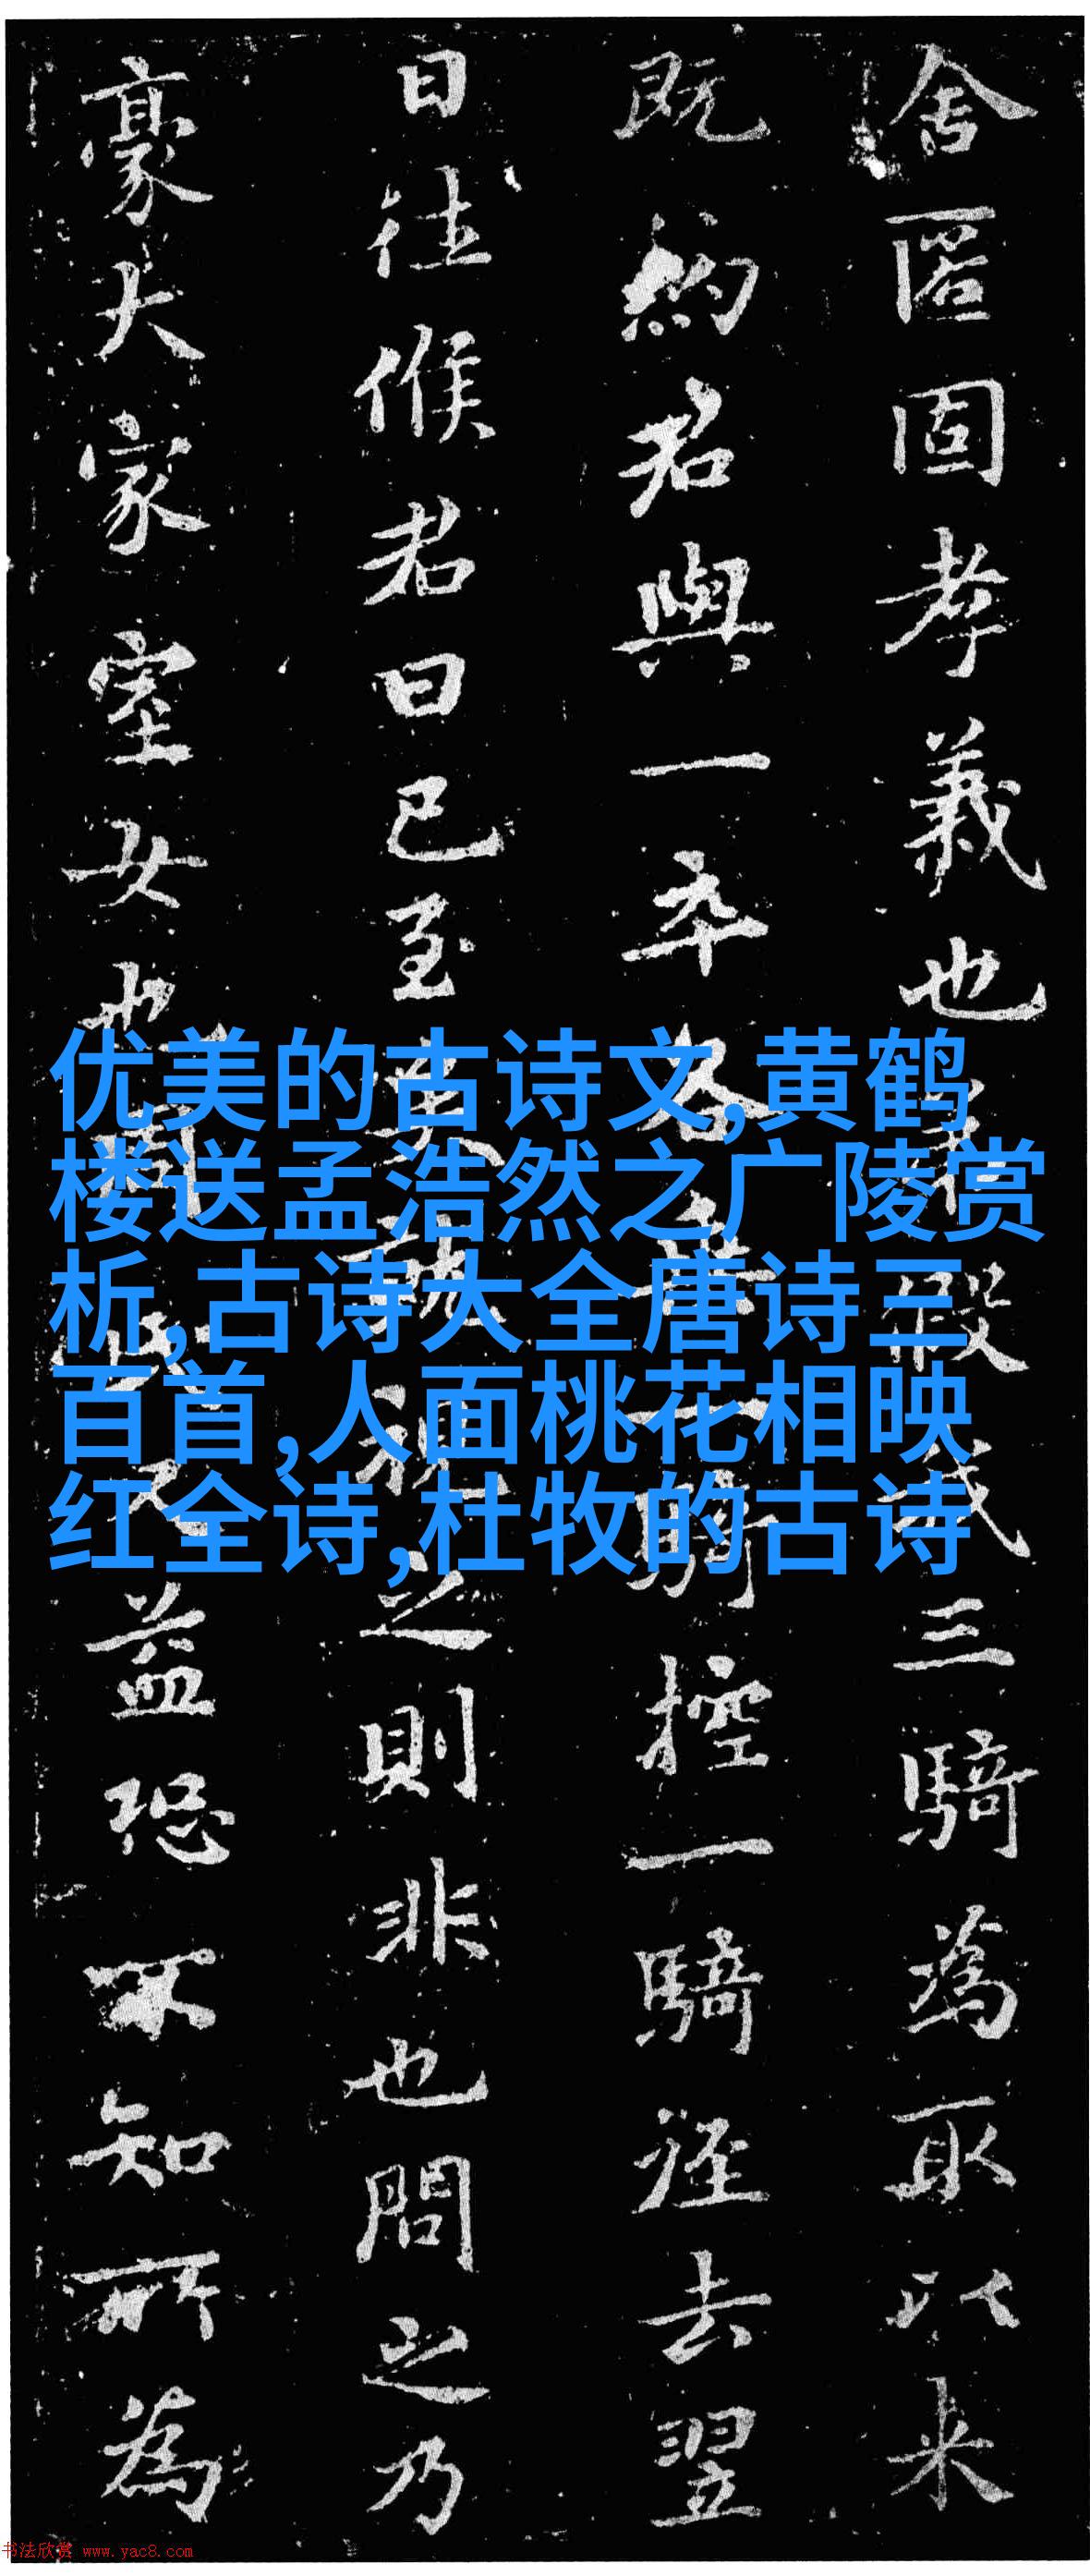 舍匿固孝義也
假
三騎為取以来
既約君與一卒
騎控一騎径去翌
日往俟君曰已至
視之則非也問之乃
豪大家室女也
益恐不知所為
优美的古诗文,黄鹤
楼送孟浩然之广陵赏
析,古诗大全唐诗三
百首,人面桃花相映
红全诗,杜牧的古诗
书法欣赏 www.yac8.com